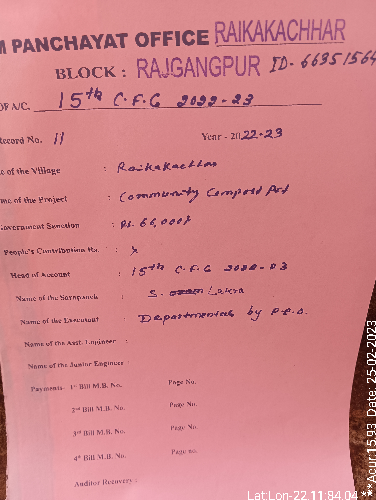 M PANCHAYAT OFFICE RAIKAKACHHAR
BLOCK : RAJGANGPUR ID- 66351564
OF A/C. 15th C.F.C 2022-23
Record No. 11 Year - 2022-23
e of the Village : Raikakachhar
me of the Project : Community Compost Pit
Government Sanction : Rs. 66,000/
People's Contribution Rs. : x
Head of Account : 15th C.F.C 2022-23
Name of the Sarapanch : S. Lakra
Name of the Executent : Departmental by P.E.O.
Name of the Asst. Engineer :
Name of the Junior Engineer :
Payments- 1st Bill M.B. No. Page No.
2nd Bill M.B. No. Page No.
3rd Bill M.B. No. Page No.
4th Bill M.B. No. Page no.
Auditor Recovery :
Lat Lon-22.11:84.04
***Acur:15.93 Date: 25-02-2023